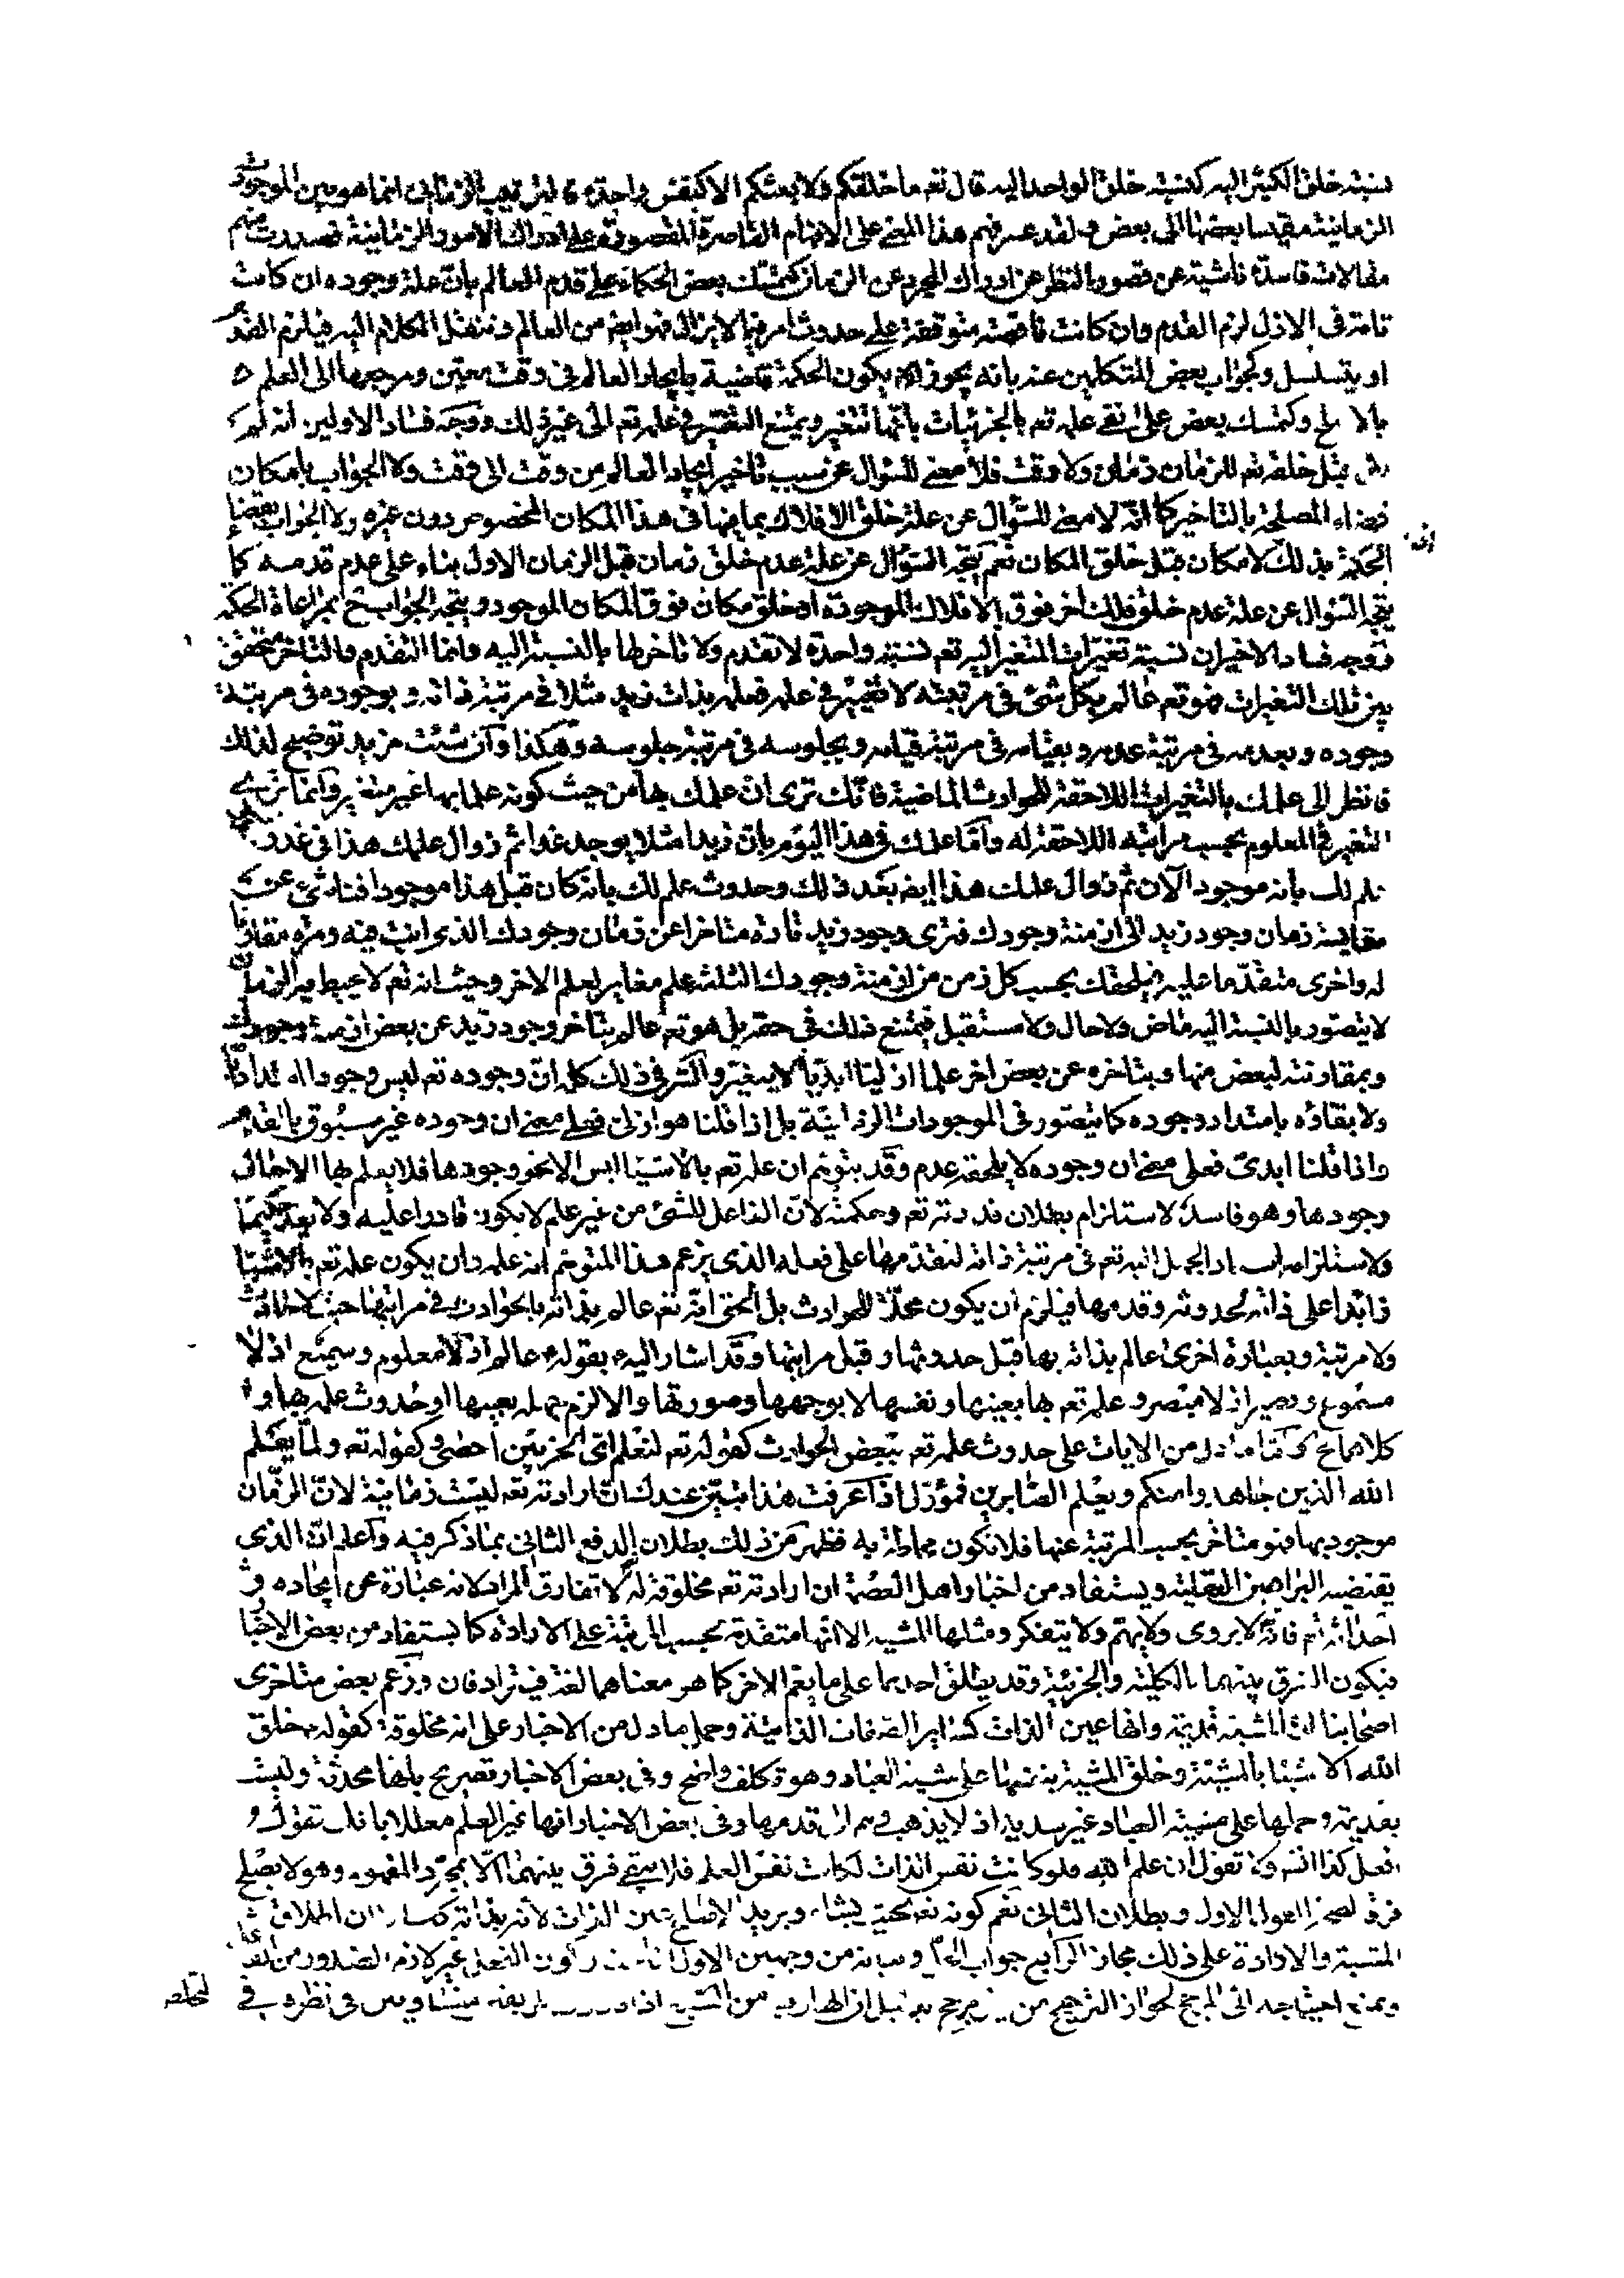 نسبته خلق الكثير اليه كنسبته خلق الواحد اليه قال تعم ما خلقكم ولا بعثكم الا كنفس واحدة الزماني انما هو بين الموجودات
الزمانية مقيسا بعضها الى بعض ولقد عسر فهم هذا المعنى على الافهام القاصرة المقصورة على ادراك الامور الزمانية فصدرت منهم
مقالات فاسدة ناشية عن قصور النظر عن ادراك المجرد عن الزمان كتمسك بعض الحكماء على قدم العالم بان علة وجوده ان كانت
تامة في الازل لزم القدم وان كانت ناقصة متوقفة على حدوث امر فيما لا يزال فهو ايضا من العالم فننقل الكلام اليه فيلزم القدم
او يتسلسل وكجواب بعض المتكلمين عنه بانه يجوز ان يكون الحكمة قاضية بايجاد العالم في وقت معين ومرجعها الى العلم
بالاصلح وكتمسك بعض على نفي علمه تعم بالجزئيات بانها تتغير ويمتنع التغير في علمه تعم الى غير ذلك ووجه فساد الاولين انه لم
يكن قبل خلقه تعم للزمان زمان ولا وقت فلا معنى للسؤال عن سبب تاخير ايجاد العالم من وقت الى وقت ولا الجواب بامكان
اقتضاء المصلحة بالتاخير كما انه لا معنى للسؤال عن علة خلق الافلاك بما فيها في هذا المكان المخصوص دون غيره ولا الجواب باقتضاء
الحكمة بذلك لا مكان قبل خلق المكان نعم يتجه السؤال عن علة عدم خلق زمان قبل الزمان الاول بناء على عدم قدمه كما
يتجه السؤال عن علة عدم خلق فلك اخر فوق الافلاك الموجودة او خلق مكان فوق المكان الموجود ويتجه الجواب ح بمراعاة الحكمة
ووجه فساد الاخير ان نسبة تغيرات المتغير اليه تعم نسبته واحدة لا تقدم ولا تاخر لها بالنسبة اليه وانما التقدم والتاخر متحقق
بين تلك التغيرات فهو تعم عالم بكل شئ في مرتبته لا تغير في علمه فعلمه بذات زيد مثلا في مرتبة ذاته وبوجوده في مرتبة
وجوده وبعدمه في مرتبة عدمه وبقيامه في مرتبة قيامه وبجلوسه في مرتبة جلوسه وهكذا وان شئت مزيد توضيح لذلك
فانظر الى علمك بالتغيرات اللاحقة للحوادث الماضية فانك ترى ان علمك بها من حيث كونه علما بها غير متغير وانما ترى
التغير في المعلوم بحسب مراتبه اللاحقة له واما علمك في هذا اليوم بان زيدا مثلا يوجد غدا ثم زوال علمك هذا في غد
علمك بانه موجود الآن ثم زوال علمك هذا ايضا بعد ذلك وحدوث علم لك بانه كان قبل هذا موجودا فناشئ عن
مقايسة زمان وجود زيد الى ازمنة وجودك فترى وجود زيد تارة متاخرا عن زمان وجودك الذي انت فيه ومرة مقارنا
له واخرى متقدما عليه فيلحقك بحسب كل زمن من ازمنة وجودك الثلثة علم مغاير لعلم الاخر وحيث انه تعم لا يحيط به الزمان
لا يتصور بالنسبة اليه ماض ولا حال ولا مستقبل فيمتنع ذلك في حقه بل هو تعم عالم بتاخر وجود زيد عن بعض ازمنة وجودك
وبمقارنته لبعض منها وبتاخره عن بعض اخر علما ازليا ابديا لا يتغير والسر في ذلك كله ان وجوده تعم ليس وجودا امتداديا
ولا بقاؤه بامتداد وجوده كما يتصور في الموجودات الزمانية بل اذا قلنا هو ازلي فعلى معنى ان وجوده غير مسبوق بالعدم
واذا قلنا ابدي فعلى معنى ان وجوده لا يلحقه عدم وقد يتوهم ان علمه تعم بالاشياء ليس الا نحو وجودها فلا يعلم بها الا حال
وجودها وهو فاسد لاستلزام بطلان قدرته تعم وحكمته لان الفاعل للشئ من غير علم لا يكون قادرا عليه ولا يعد حكيما
ولاستلزامه الجهل اليه تعم في مرتبة ذاته لتقدمها على فعله الذي يزعم هذا المتوهم انه علمه وان يكون علمه تعم بالاشياء
زائدا على ذاته لحدوثه وقدمها فيلزم ان يكون محلا للحوادث بل الحق انه تعم عالم بذاته بالحوادث في مراتبها حيث لا حادث
ولا مرتبة وبعبارة اخرى عالم بذاته بها قبل حدوثها وقبل مراتبها وقد اشار اليه بقوله عالم اذ لا معلوم وسميع اذ لا
مسموع وبصير اذ لا مبصر وعلمه تعم بها بعينها ونفسها لا بوجهها وصورتها والا لزم جهله بعينها او حدوث علمه بها و
كلاهما مح واما ما دل من الايات على حدوث علمه تعم ببعض الحوادث كقوله تعم لنعلم اي الحزبين احصى وكقوله تعم ولما يعلم
الله الذين جاهدوا منكم ويعلم الصابرين فمؤول اذا عرفت هذا تبين عندك ان ارادته تعم ليست زمانية لان الزمان
موجود بها فهو متاخر بحسب المرتبة عنها فلا تكون محاطة به فظهر من ذلك بطلان الدفع الثاني بما ذكر فيه واعلم ان الذي
يقتضيه البراهين العقلية ويستفاد من اخبار اهل العصمة ان ارادته تعم مخلوقة له لا تفارق المراد لانه عبارة عن ايجاده و
احداثه فانه لا يروي ولا يهم ولا يتفكر ومثلها المشية الا انها متقدمة بحسب المرتبة على الارادة كما يستفاد من بعض الاخبار
فيكون الفرق بينهما بالكلية والجزئية وقد يطلق احدهما على ما يعم الاخر كما هو معناهما لغة فيترادفان وزعم بعض متاخري
اصحابنا ان المشية قديمة وانها عين الذات كسائر الصفات الذاتية وحمل ما دل من الاخبار على انه مخلوقة كقوله خلق
الله الاشياء بالمشية وخلق المشية بنفسها على مشية العباد وهو تكلف واضح وفي بعض الاخبار تصريح بانها محدثة وليست
بقديمة وحملها على مشية العباد غير سديد اذ لا يذهب وهم الى قدمها وفي بعض الاخبار انها غير العلم معللا بانك تقول
افعل كذا انشاء الله ولا تقول ان علم الله فلو كانت نفس الذات لكانت نفس العلم فلا يبقى فرق بينهما الا بمجرد المفهوم وهو لا يصلح
فرقا لصحة القول الاول وبطلان الثاني نعم كونه تعم بحيث يشاء ويريد الاصلح عين الذات لانه بذاته كسائر ان اطلاق
المشية والارادة على ذلك مجاز الرابع جواب وبيانه من وجهين الاول كون الفعل غير لازم الصدور من الفاعل
ويمنع احتياجه الى المرجح لجواز الترجيح من غير مرجح الهارب من السبع اذا طريقان متساويين في نظره في
لتخلصه